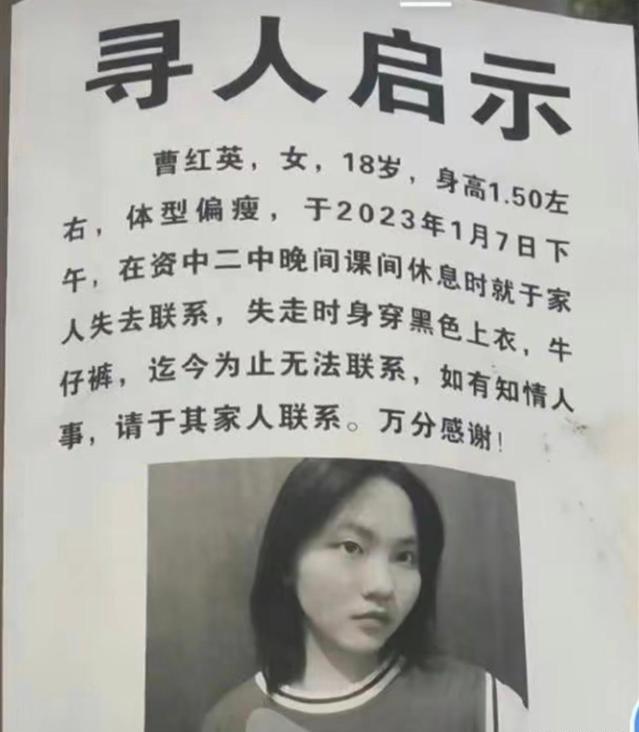 寻人启示
曹红英，女，18岁，身高1.50左
右，体型偏瘦，于2023年1月7日下
午，在资中二中晚间课间休息时就于家
人失去联系，失走时身穿黑色上衣，牛
仔裤，迄今为止无法联系，如有知情人
事，请于其家人联系。万分感谢！